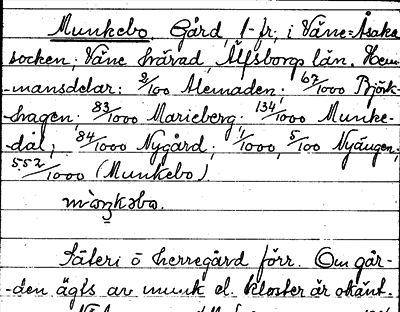 Munkebo. Gård, f-fr, i Väne-Åsaka
socken, Väne härad, Älfsborgs län. Hem-
-mansdelar: 2/100 Alemaden; 67/1000 Björk-
-hagen. 83/1000 Marieberg. 134/1000 Munke-
dal; 84/1000 Nygård; 1/1000, 5/100 Nyängen;
552/1000 (Munkebo)
Säteri o herregård förr. Om går-
-den ägts av munk el. kloster är okänt.